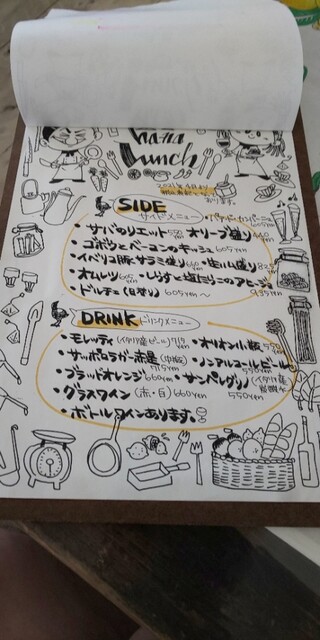 haha
Lunch
2021年4月
おります。
SIDE サイドメニュー ・バーニャカウダ
・サバのリエット 550 オリーブ盛り 440
・ゴボウとベーコンのキッシュ 605yen
・イベリコ豚サラミ盛り ・生ハム盛り
・オムレツ 605yen ・しらすと塩だらこのアヒージョ
・ドルチェ(日替り) 605yen〜 935yen
DRINK ドリンクメニュー
・モレッティ(イタリア産ビール) 715yen ・オリオン小瓶 550yen
・サッポロラガー赤星(中瓶) 715yen ・ノンアルコールビール 550yen
・ブラッドオレンジ 660yen ・サンペレグリノ(イタリア産炭酸水) 550yen
・グラスワイン(赤・白) 660yen
・ボトルワインあります。